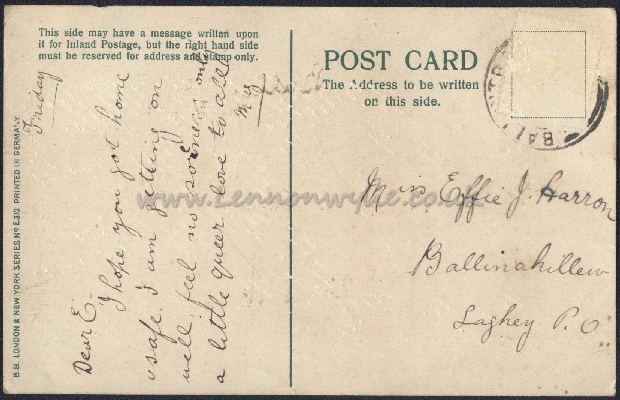 This side may have a message written upon
it for Inland Postage, but the right hand side
must be reserved for address and stamp only.
POST CARD
The Address to be written
on this side.
B.B. LONDON & NEW YORK SERIES No E310. PRINTED IN GERMANY.
Friday
Dear E.
I hope you got home
safe. I am getting on
well feel no soreness only
a little queer love to all
Miss Effie J. Harron
Ballinakillew
Laghey P.O
BALLINTR
www.Lennonwylie.co.uk